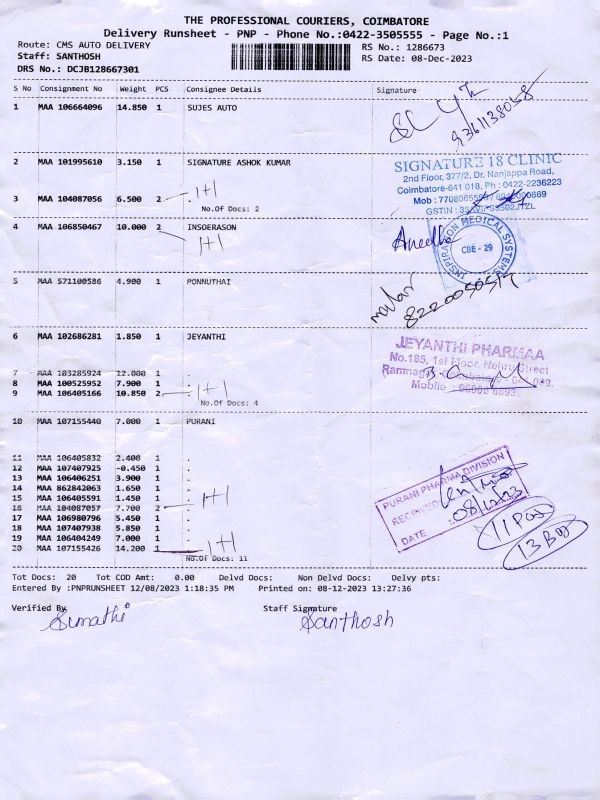 THE PROFESSIONAL COURIERS, COIMBATORE
Delivery Runsheet - PNP - Phone No.:0422-3505555 - Page No.:1
Route: CMS AUTO DELIVERY
RS No.: 1286673
Staff: SANTHOSH
RS Date: 08-Dec-2023
DRS No.: DCJB128667301
S No Consignment No Weight PCS Consignee Details Signature
1 MAA 106664096 14.850 1 SUJES AUTO
9361138058
2 MAA 101995610 3.150 1 SIGNATURE ASHOK KUMAR
SIGNATURE 18 CLINIC
2nd Floor, 377/2, Dr. Nanjappa Road,
Coimbatore-641 018. Ph : 0422-2236223
3 MAA 104087056 6.500 2 . 1+1
No.Of Docs: 2
4 MAA 106850467 10.000 2 INSOERASON
1+1
INSPIRATION MEDICAL SYSTEMS
CBE - 29
5 MAA 571100586 4.900 1 PONNUTHAI
8220050517
6 MAA 102686281 1.850 1 JEYANTHI
JEYANTHI PHARMAA
No.185, 1st Floor, Nehru Street
7 MAA 103285924 12.000 1 .
8 MAA 100525952 7.900 1 .
9 MAA 106405166 10.850 2 . 1+1
No.Of Docs: 4
10 MAA 107155440 7.000 1 PURANI
11 MAA 106405832 2.400 1 .
12 MAA 107407925 -0.450 1 .
13 MAA 106406251 3.900 1 .
14 MAA 862842063 1.650 1 .
15 MAA 106405591 1.450 1 .
16 MAA 104087057 7.700 2 . 1+1
17 MAA 106980796 5.450 1 .
18 MAA 107407938 5.850 1 .
19 MAA 106404249 7.000 1 .
20 MAA 107155426 14.200 1 . 1+1
No.Of Docs: 11
PURANI PHARMA DIVISION
RECEIVED
DATE : 08/12/23
13 Box
Tot Docs: 20 Tot COD Amt: 0.00 Delvd Docs: Non Delvd Docs: Delvy pts:
Entered By :PNPRUNSHEET 12/08/2023 1:18:35 PM Printed on: 08-12-2023 13:27:36
Verified By Staff Signature
Sumathi Santhosh